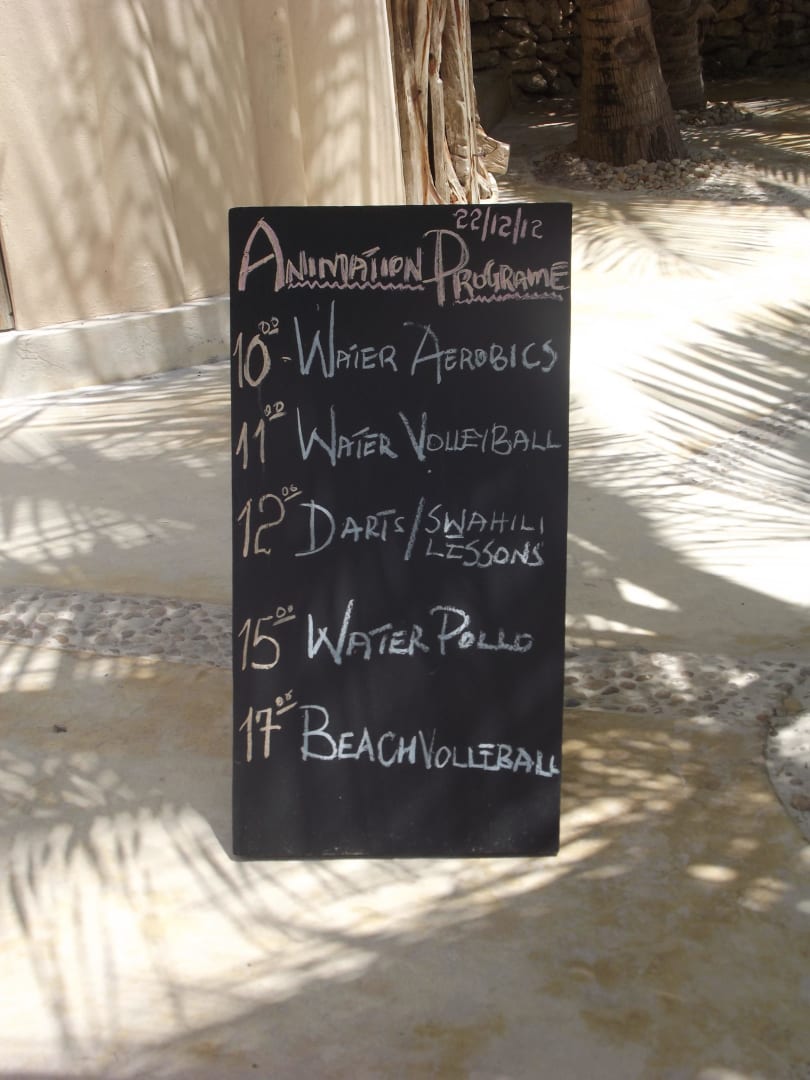 22/12/12
ANIMATION PROGRAME
10 00 - WATER AEROBICS
11 00 WATER VOLLEYBALL
12 00 DARTS/SWAHILI
LESSONS
15 00 WATER POLLO
17 00 BEACH VOLLEBALL